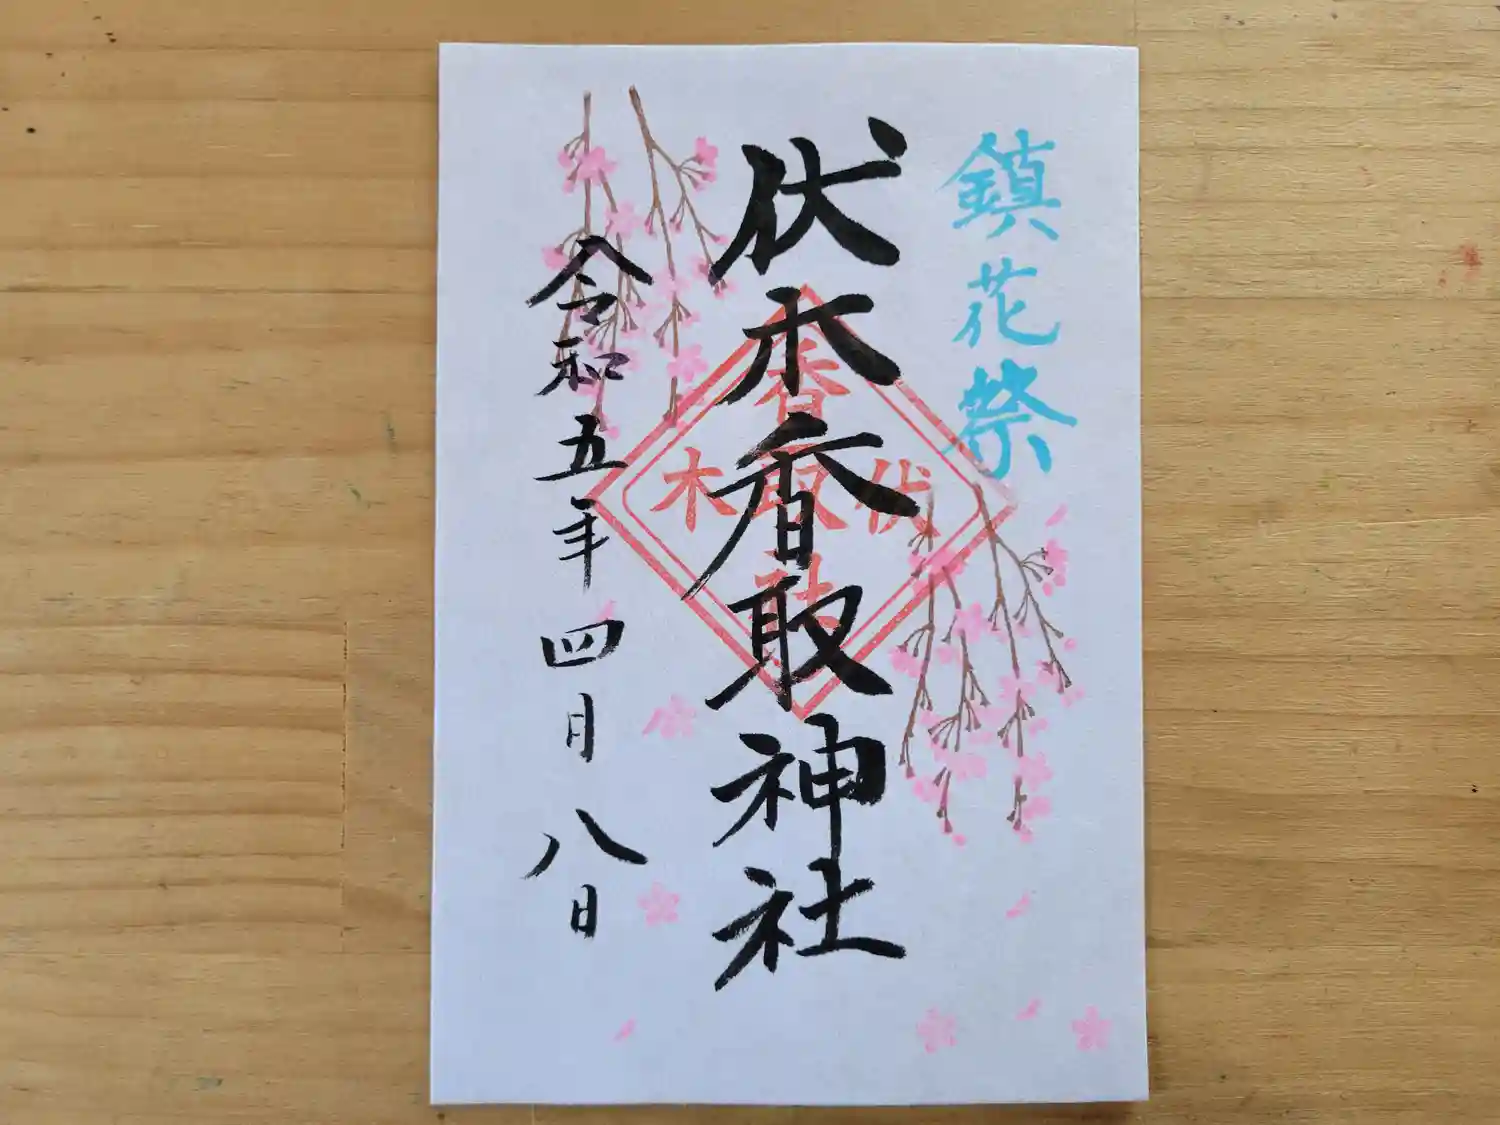 鎮花祭
伏木香取神社
令和五年四月八日
香
伏取木
社